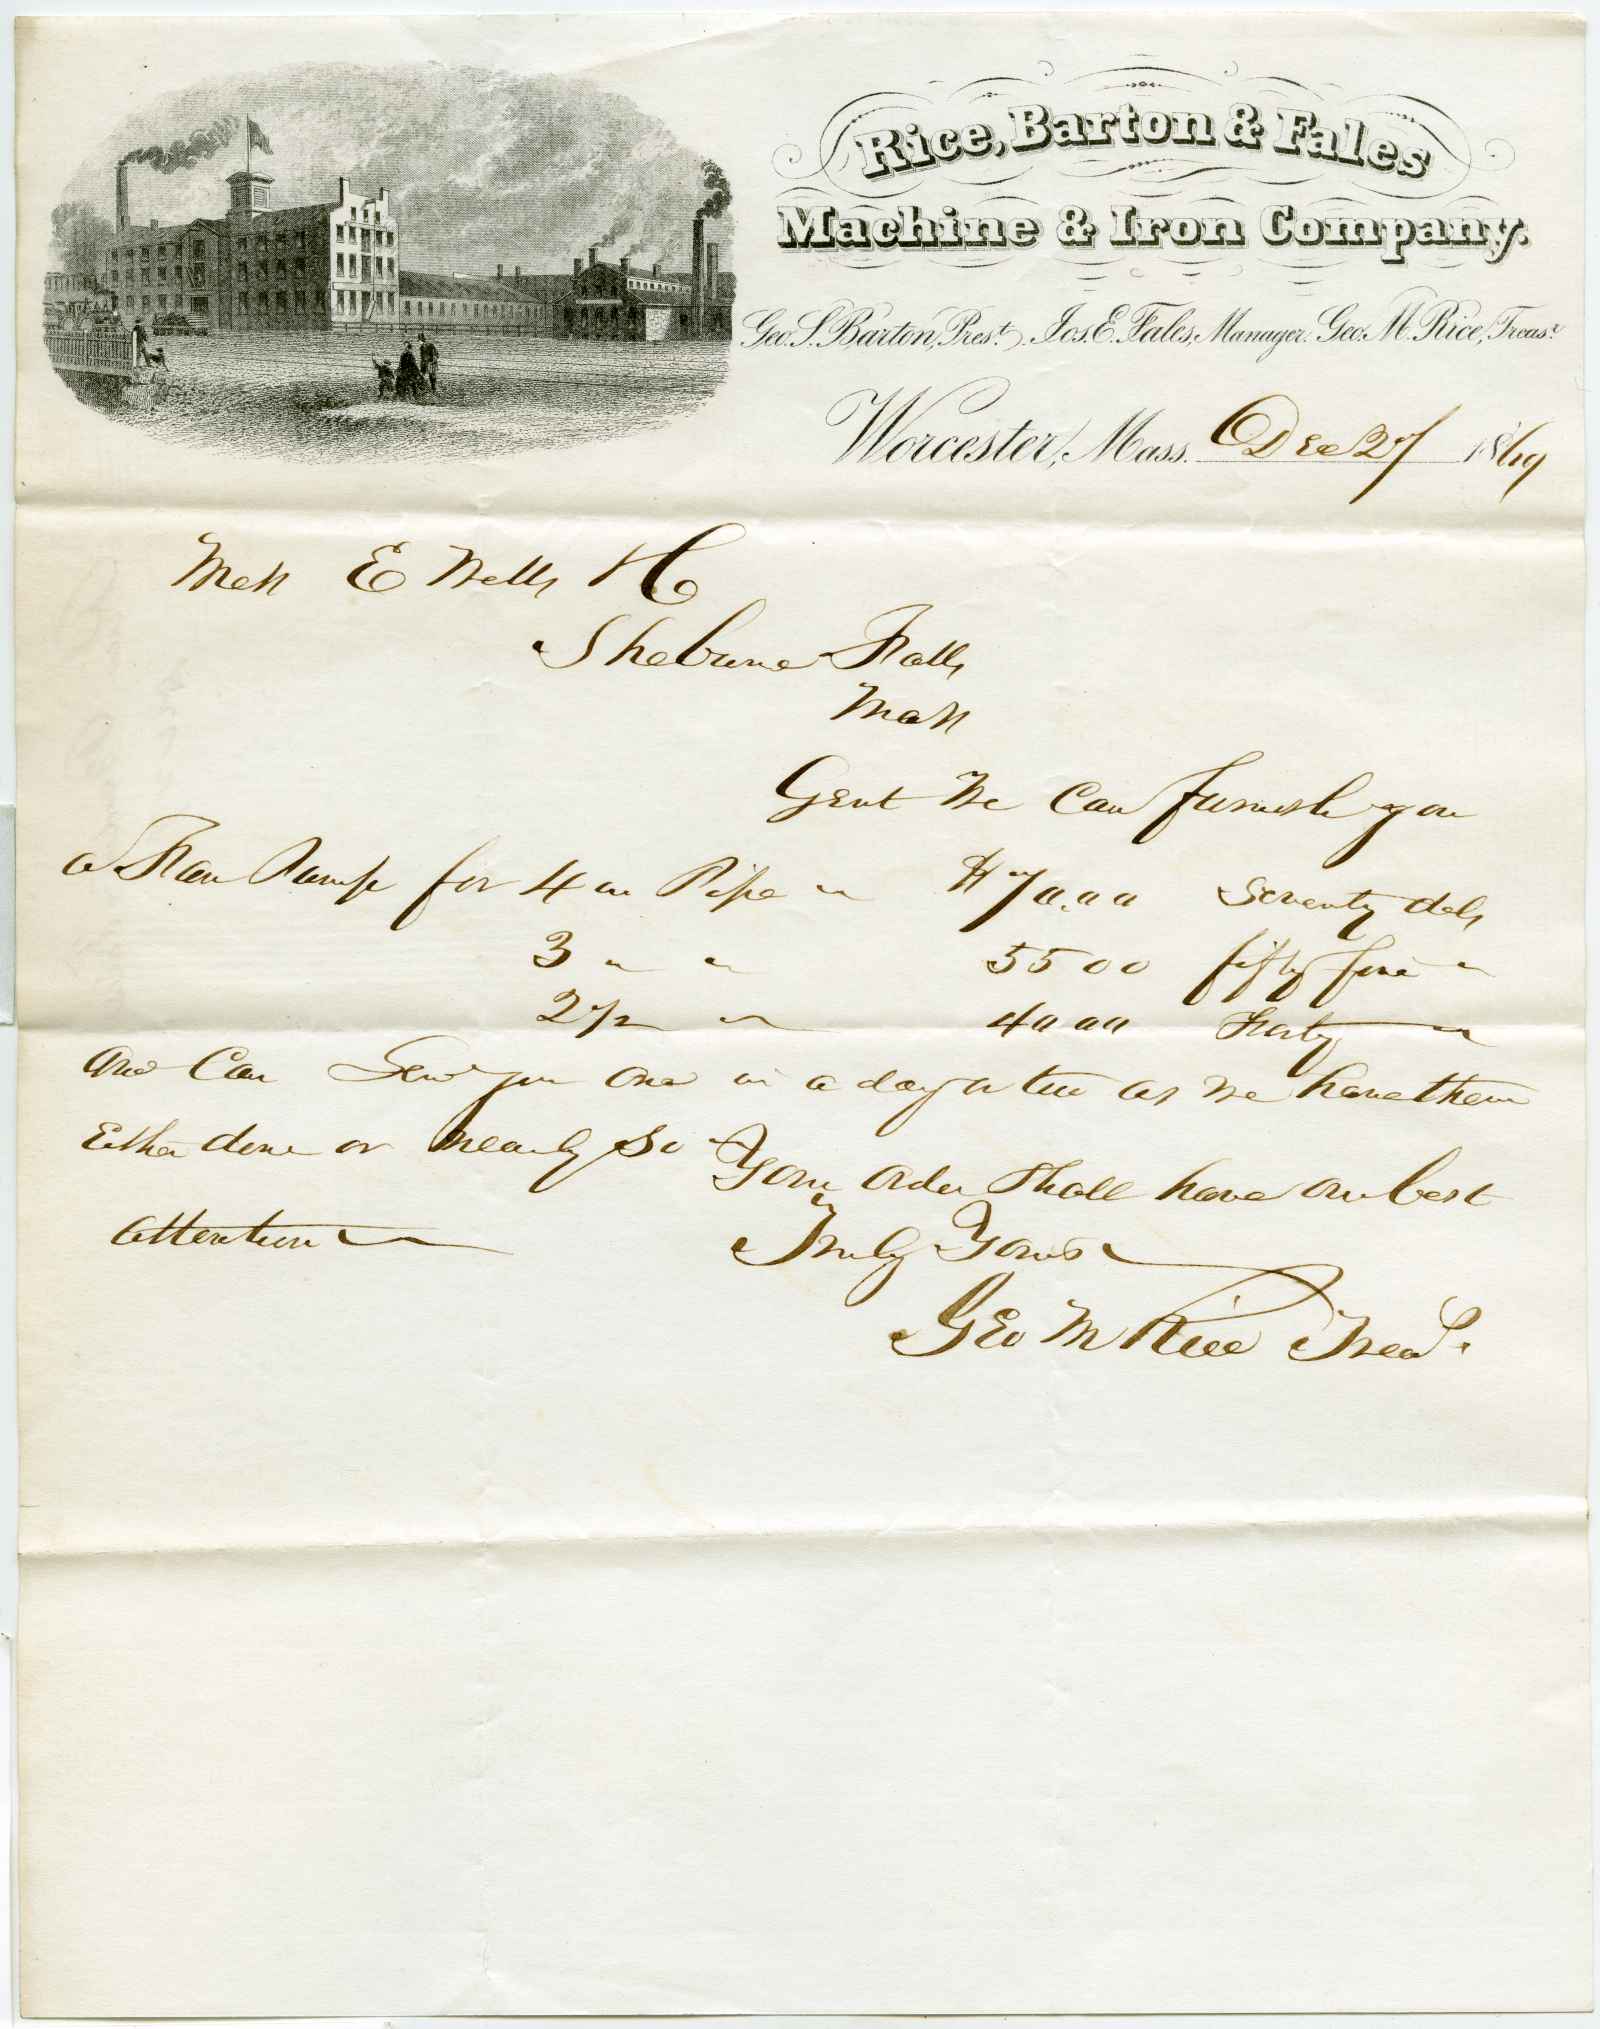 Rice, Barton & Fales
Machine & Iron Company.
Geo. S. Barton, Prest. Jos. E. Fales, Manager. Geo. M. Rice, Treasr
Worcester, Mass. Dec 27 1869
Mess E Wells
Shelburne Falls
Mass
Gent We Can furnish you
a Fan Pump for 4 in Pipe " $70.00 Seventy dols
3 " " 55 00 fifty five "
2 1/2 " 40 00 Forty "
and Can Send you one in a day or two as we have them
Either done or nearly so Your order shall have our best
attention Truly Yours
Geo M Rice Treas.